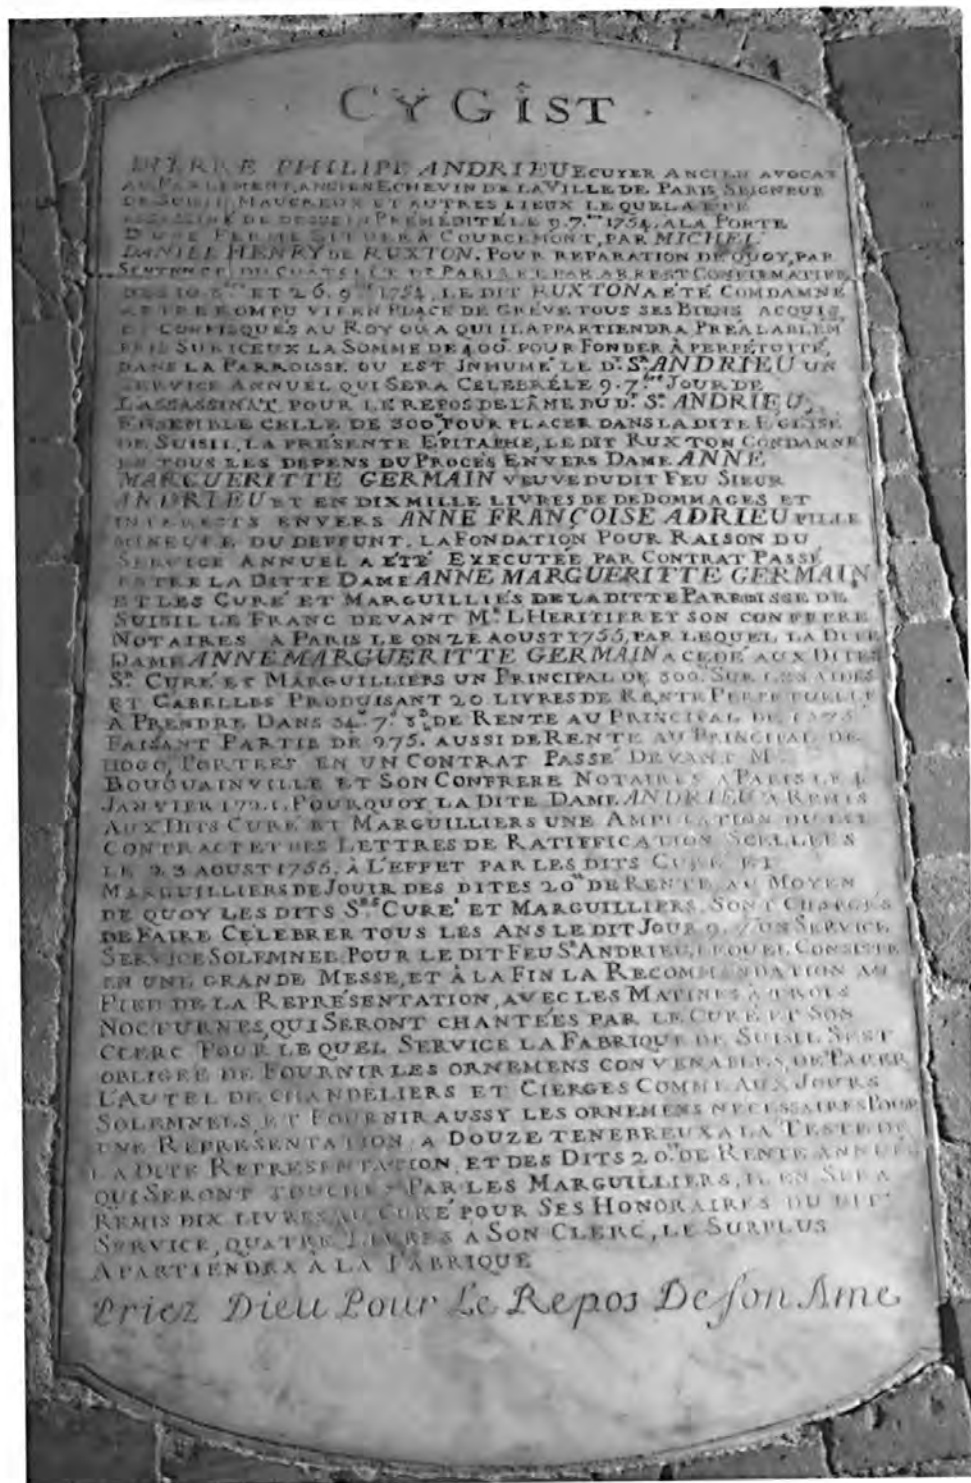 CY GÎST
PIERRE PHILIPE ANDRIEU ECUYER ANCIEN AVOCAT
AU PARLEMENT, ANCIEN ECHEVIN DE LA VILLE DE PARIS SEIGNEUR
DE SUISIL, MAUCREUX ET AUTRES LIEUX LEQUEL A ETÉ
ASSASSINÉ DE DESSEIN PREMÉDITÉ LE 9.7.bre 1754. A LA PORTE
D'UNE FERME SITUÉE A COURCEMONT, PAR MICHEL
DANIEL HENRY DE RUXTON. POUR REPARATION DE QUOY, PAR
SENTENCE DU CHATELET DE PARIS ET PAR ARREST CONFIRMATIF
DES 10. ET 26. 9.bre 1754, LE DIT RUXTON A ÉTÉ COMDAMNÉ
ROMPU VIF EN PLACE DE GRÉVE, TOUS SES BIENS ACQUIS,
ET CONFISQUÉS AU ROY OU A QUI IL APPARTIENDRA PREALABLEM
PRIS SUR ICEUX LA SOMME DE 400. POUR FONDER À PERPÉTUITÉ,
DANS LA PARROISSE OU EST INHUMÉ LE D.t S.r ANDRIEU UN
SERVICE ANNUEL QUI SERA CELEBRÉ LE 9.7.bre JOUR DE
L'ASSASSINAT POUR LE REPOS DE L'ÂME DU D.t S.r ANDRIEU,
ENSEMBLE CELLE DE 300.tt POUR PLACER DANS LADITE EGLISE
DE SUISIL, LA PRÉSENTE EPITAPHE, LE DIT RUXTON CONDAMNÉ
EN TOUS LES DEPENS DU PROCÉS ENVERS DAME ANNE
MARGUERITTE GERMAIN VEUVE DUDIT FEU SIEUR
ANDRIEU ET EN DIX MILLE LIVRES DE DEDOMMAGES ET
INTERESTS ENVERS ANNE FRANÇOISE ADRIEU FILLE
MINEURE DU DEFFUNT. LA FONDATION POUR RAISON DU
SERVICE ANNUEL A ÉTÉ EXECUTÉE PAR CONTRAT PASSÉ
ENTRE LA DITTE DAME ANNE MARGUERITTE GERMAIN
ET LES CURÉ ET MARGUILLIÉS DE LA DITTE PAROISSE DE
SUISIL LE FRANC DEVANT M.e LHERITIER ET SON CONFRERE
NOTAIRES A PARIS LE ONZE AOUST 1755, PAR LEQUEL LA DITE
DAME ANNE MARGUERITTE GERMAIN A CEDÉ AUX DITES
S.rs CURÉ ET MARGUILLIERS UN PRINCIPAL DE 800. SUR LES AIDES
ET GABELLES PRODUISANT 20 LIVRES DE RENTE PERPETUELLE
A PRENDRE DANS 34. 7. DE RENTE AU PRINCIPAL DE
FAISANT PARTIE DE 975. AUSSI DE RENTE AU PRINCIPAL DE
PORTÉES EN UN CONTRAT PASSÉ DEVANT M.e
BOUGUAINVILLE ET SON CONFRERE NOTAIRES A PARIS LE
JANVIER POURQUOY LA DITE DAME ANDRIEU A REMIS
AUX DITS CURÉ ET MARGUILLIERS UNE AMPLIATION DUDIT
CONTRACT ET DES LETTRES DE RATIFFICATION SCELLÉES
LE 23 AOUST 1755. À L'EFFET PAR LES DITS CURÉ ET
MARGUILLIERS DE JOUIR DES DITES 20.tt DE RENTE, AU MOYEN
DE QUOY LES DITS S.rs CURÉ ET MARGUILLIERS, SONT CHARGÉS
DE FAIRE CELEBRER TOUS LES ANS LE DIT JOUR 9.7 UN SERVICE
SERVICE SOLEMNEL POUR LE DIT FEU S.r ANDRIEU, LEQUEL CONSISTE
EN UNE GRANDE MESSE, ET À LA FIN LA RECOMMENDATION AU
PIED DE LA REPRÉSENTATION, AVEC LES MATINES À TROIS
NOCTURNES, QUI SERONT CHANTÉES PAR LE CURÉ ET SON
CLERC POUR LEQUEL SERVICE LA FABRIQUE DE SUISIL SEST
OBLIGÉE DE FOURNIR LES ORNEMENS CONVENABLES, DE PARER
L'AUTEL DE CHANDELIERS ET CIERGES COMME AUX JOURS
SOLEMNELS, ET FOURNIR AUSSY LES ORNEMENS NECESSAIRES POUR
UNE REPRESENTATION, A DOUZE TENEBREUX A LA TESTE DE
LA DITE REPRESENTATION, ET DES DITS 20.tt DE RENTE ANNUEL
QUI SERONT TOUCHÉS PAR LES MARGUILLIERS, IL EN SERA
REMIS DIX LIVRES AU CURÉ POUR SES HONORAIRES DU DIT
SERVICE, QUATRE LIVRES A SON CLERC, LE SURPLUS
APARTIENDRA A LA FABRIQUE
Priez Dieu Pour Le Repos De son Ame